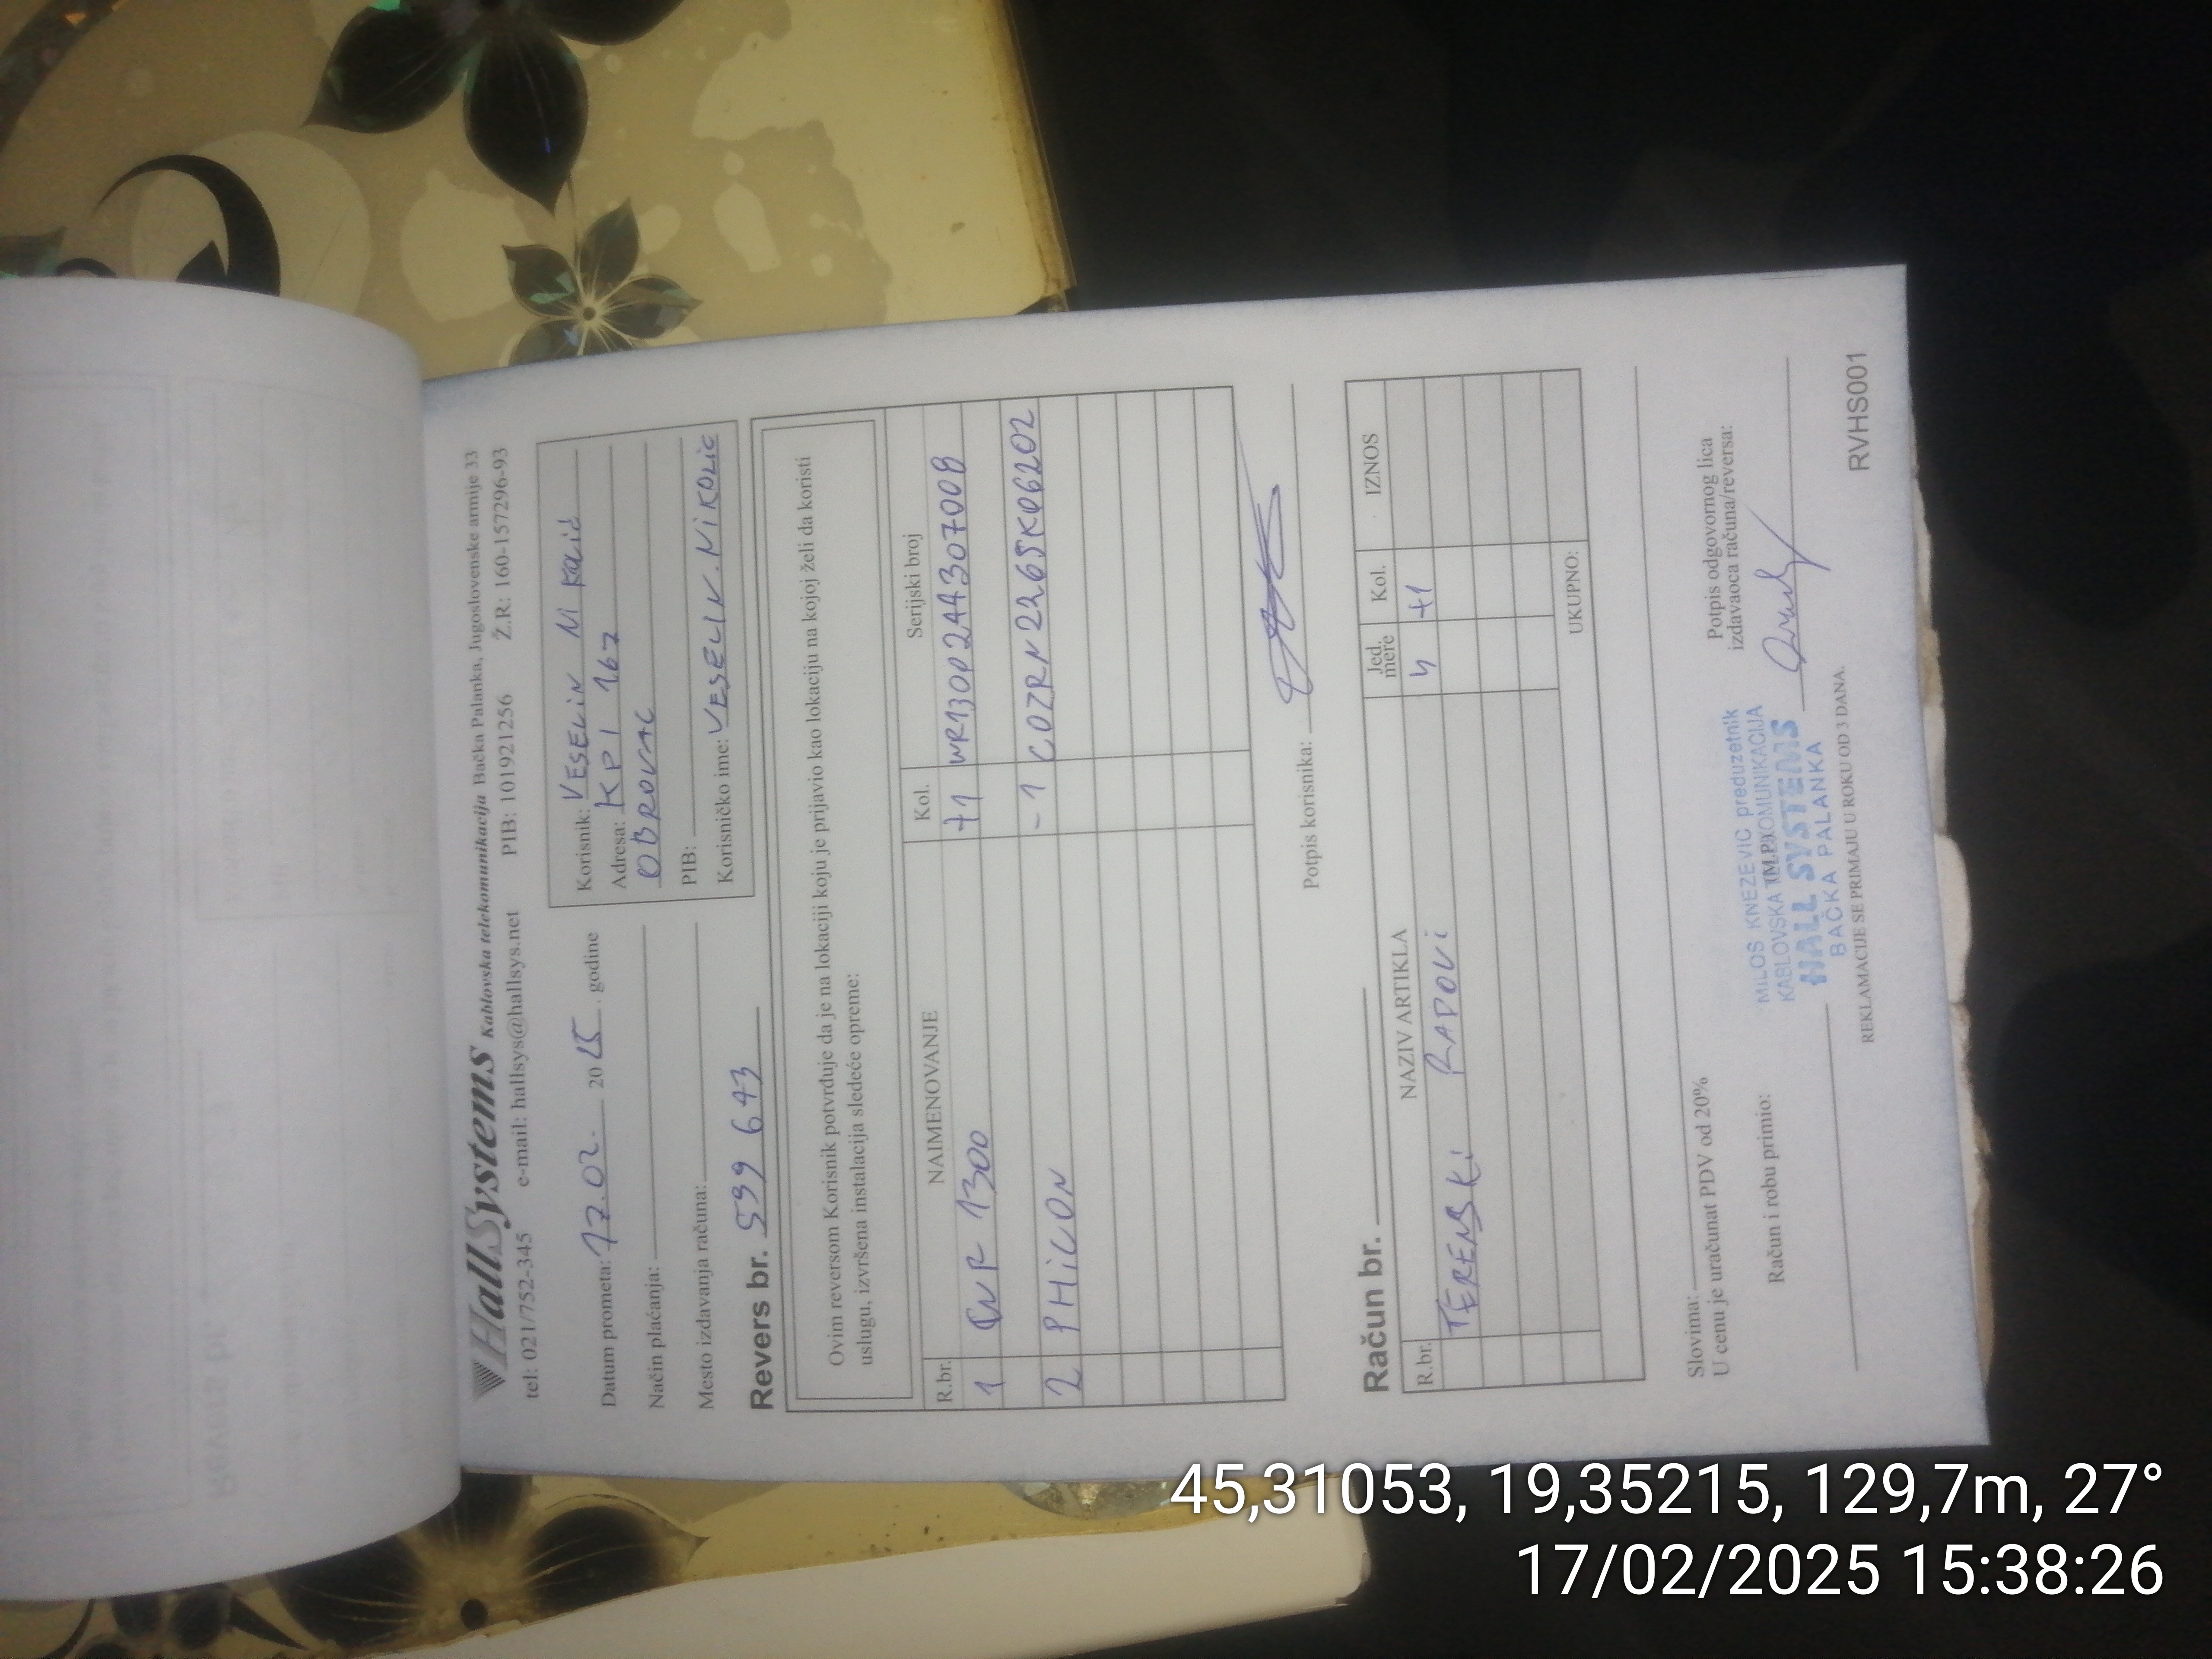 HallSystems Kablovska telekomunikacija Bačka Palanka, Jugoslovenske armije 33
tel: 021/752-345 e-mail: hallsys@hallsys.net PIB: 101921256 Ž.R: 160-157296-93
Datum prometa: 17.02- 2025. godine
Način plaćanja:
Mesto izdavanja računa:
Korisnik: VESELIN NIKOLIĆ
Adresa: KPI 167
OBROVAC
PIB:
Korisničko ime: VESELIN.NIKOLIC
Revers br. 599 643
Ovim reversom Korisnik potvrđuje da je na lokaciji koju je prijavio kao lokaciju na kojoj želi da koristi
uslugu, izvršena instalacija sledeće opreme:
R.br. NAIMENOVANJE Kol. Serijski broj
1 1300 +1 WR130P244307008
2 PHICON -1 COZRN2265K06202
Potpis korisnika:
Račun br.
R.br. NAZIV ARTIKLA Jed. mere Kol. IZNOS
TERENSKI RADOVI 4 +1
UKUPNO:
Slovima:
U cenu je uračunat PDV od 20%
Račun i robu primio:
Potpis odgovornog lica
izdavaoca računa/reversa:
(M.P.)
MILOS KNEZEVIC preduzetnik
KABLOVSKA TELEKOMUNIKACIJA
HALL SYSTEMS
BAČKA PALANKA
REKLAMACIJE SE PRIMAJU U ROKU OD 3 DANA.
RVHS001
45,31053, 19,35215, 129,7m, 27°
17/02/2025 15:38:26